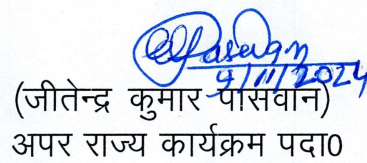 9/11/2024
(जीतेन्द्र कुमार पासवान)
अपर राज्य कार्यक्रम पदा0